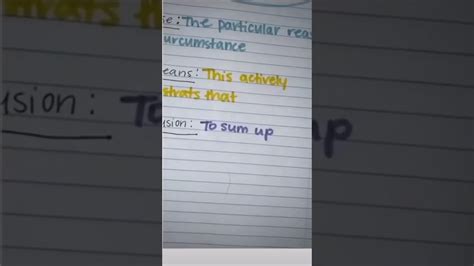 se: The particular reas
circumstance
eans: This actively
strats that
usion: To sum up